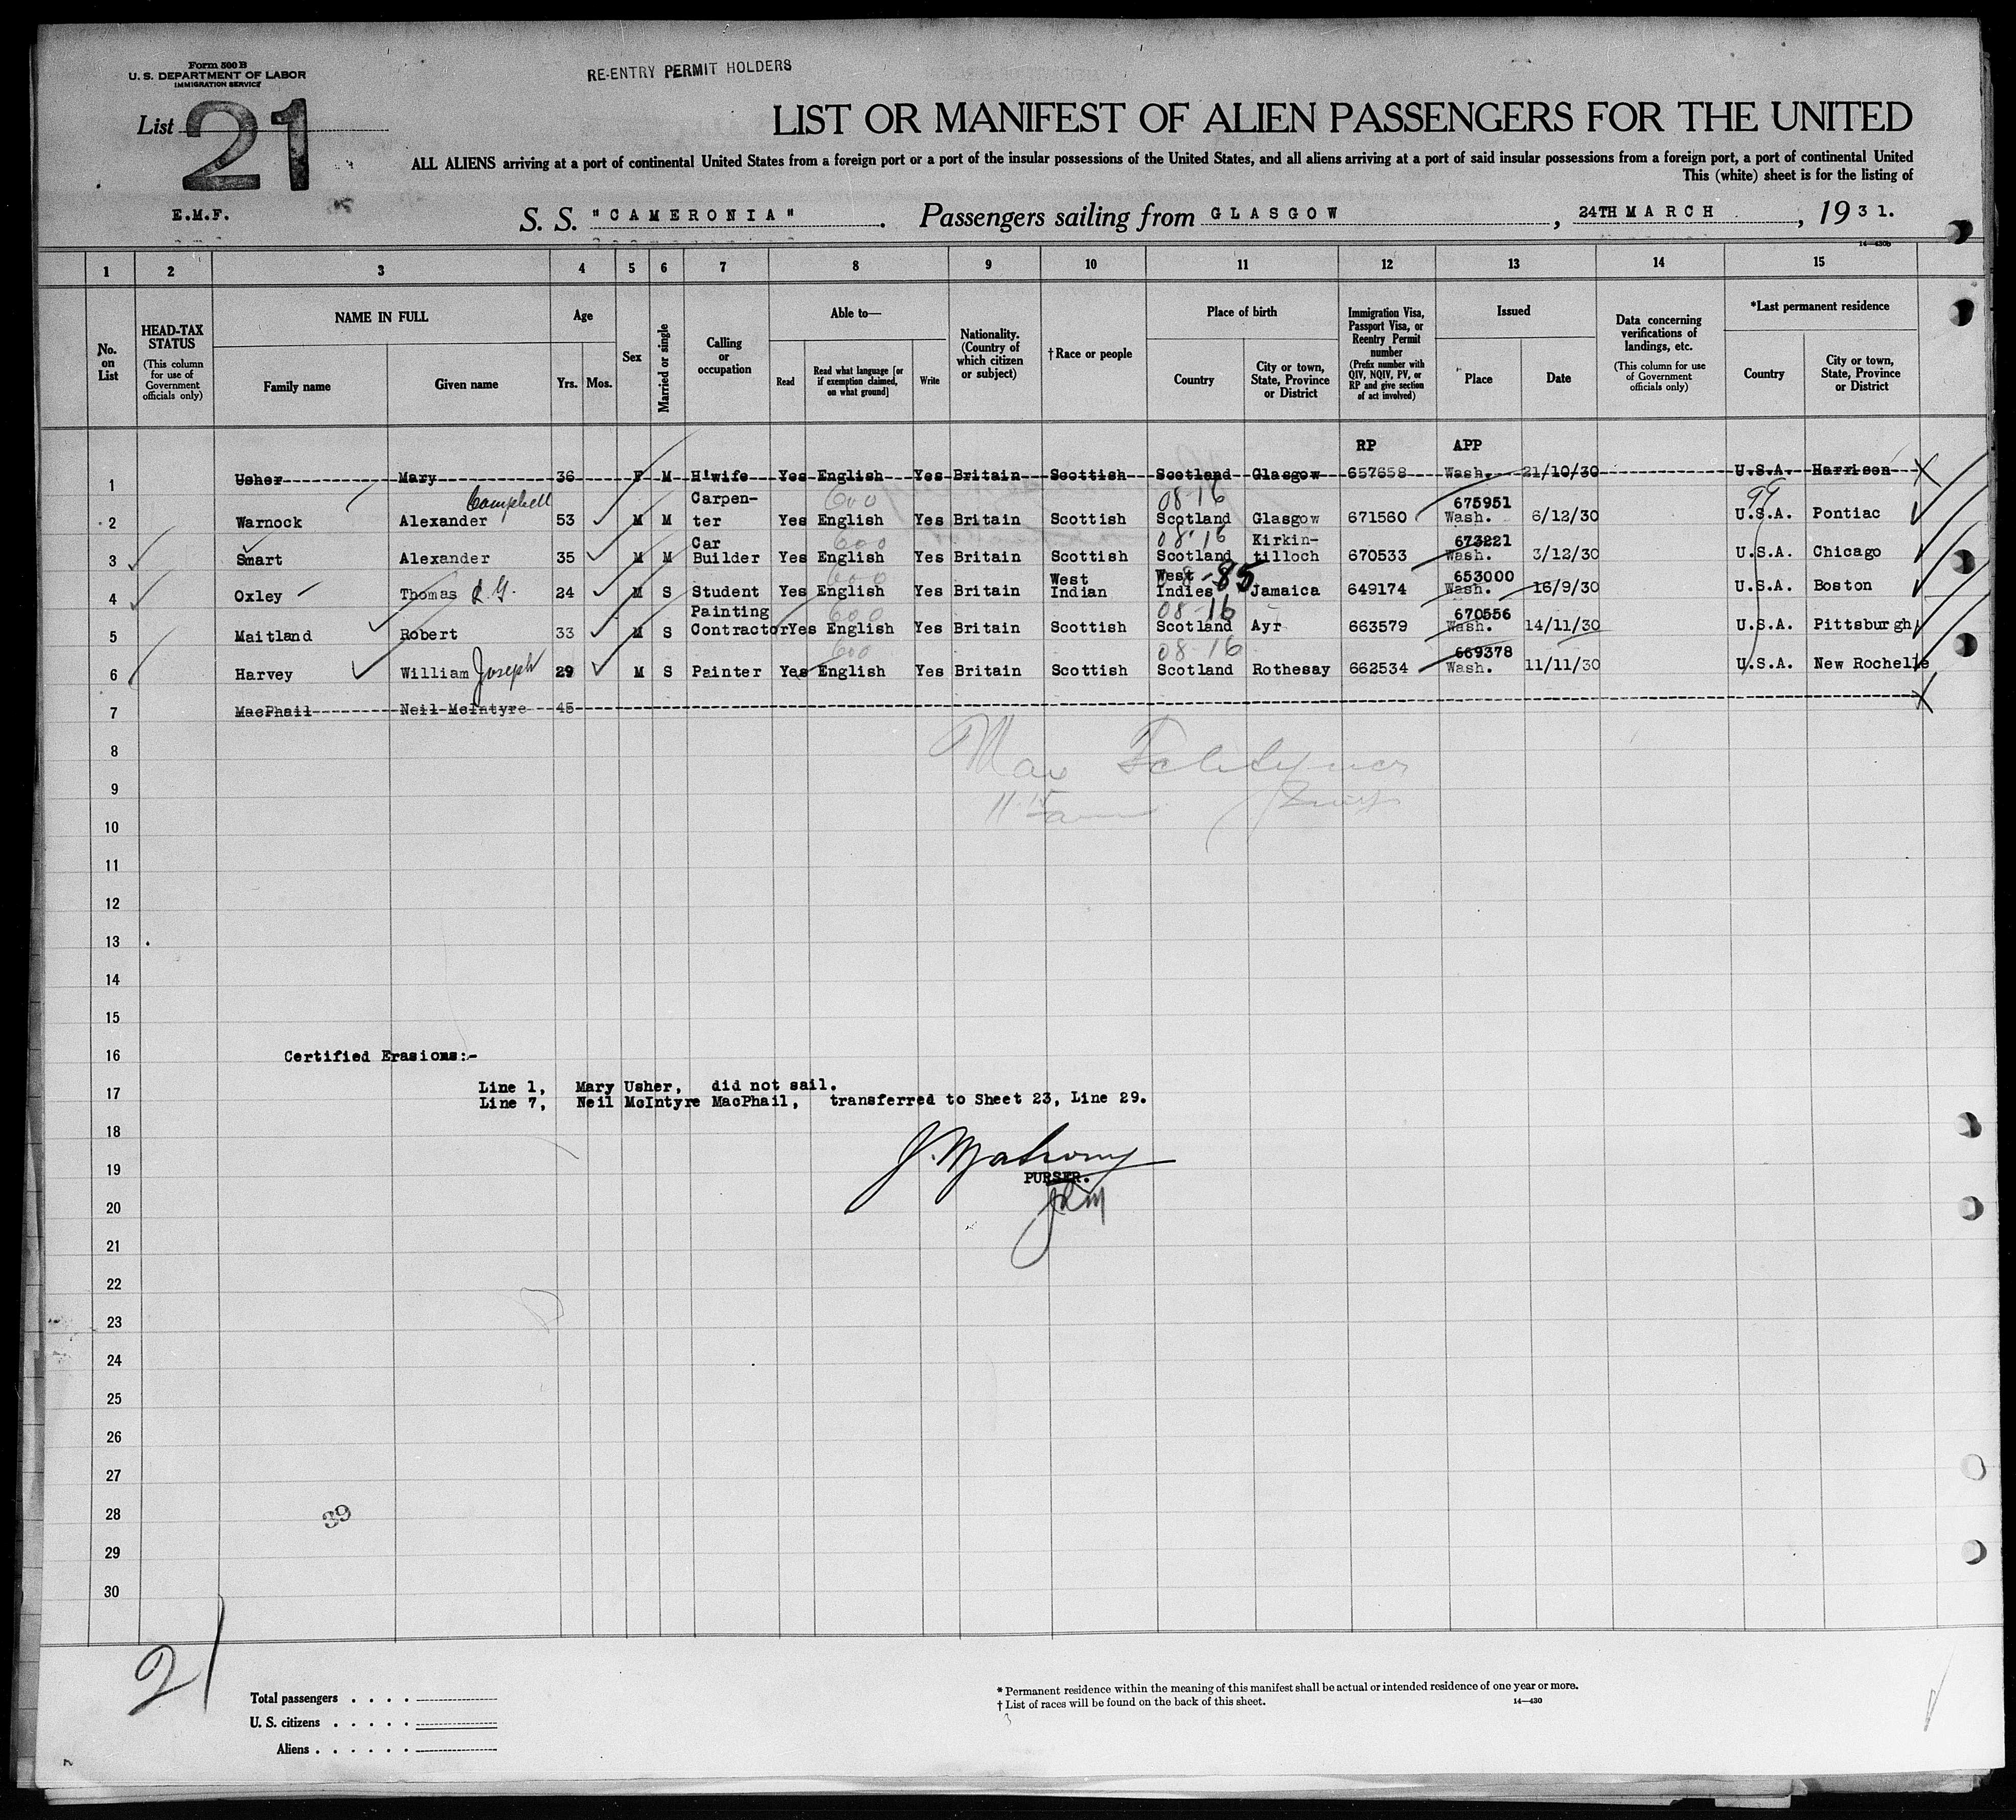 Form 500 B
U. S. DEPARTMENT OF LABOR
IMMIGRATION SERVICE
RE-ENTRY PERMIT HOLDERS
List 21
LIST OR MANIFEST OF ALIEN PASSENGERS FOR THE UNITED
ALL ALIENS arriving at a port of continental United States from a foreign port or a port of the insular possessions of the United States, and all aliens arriving at a port of said insular possessions from a foreign port, a port of continental United
This (white) sheet is for the listing of
E.M.F.
S. S. "CAMERONIA". Passengers sailing from GLASGOW, 24TH MARCH, 1931.
14—430b
1 2 3 4 5 6 7 8 9 10 11 12 13 14 15
No. on List
HEAD-TAX STATUS (This column for use of Government officials only)
NAME IN FULL
Family name Given name
Age
Yrs. Mos.
Sex
Married or single
Calling or occupation
Able to—
Read Read what language [or if exemption claimed, on what ground] Write
Nationality. (Country of which citizen or subject)
†Race or people
Place of birth
Country City or town, State, Province or District
Immigration Visa, Passport Visa, or Reentry Permit number (Prefix number with QIV, NQIV, PV, or RP and give section of act involved)
Issued
Place Date
Data concerning verifications of landings, etc. (This column for use of Government officials only)
*Last permanent residence
Country City or town, State, Province or District
RP APP
1 Usher Mary 36 F M H'wife Yes English Yes Britain Scottish Scotland Glasgow 657658 Wash. 21/10/30 U.S.A. Harrison X
Campbell Carpen- 600 08-16 675951 99
2 Warnock Alexander 53 M M ter Yes English Yes Britain Scottish Scotland Glasgow 671560 Wash. 6/12/30 U.S.A. Pontiac
Car 600 08-16 Kirkin- 673221
3 Smart Alexander 35 M M Builder Yes English Yes Britain Scottish Scotland tilloch 670533 Wash. 3/12/30 U.S.A. Chicago
600 West West 85 653000
4 Oxley Thomas 24 M S Student Yes English Yes Britain Indian Indies Jamaica 649174 Wash. 16/9/30 U.S.A. Boston
Painting 600 08-16 670556
5 Maitland Robert 33 M S Contractor Yes English Yes Britain Scottish Scotland Ayr 663579 Wash. 14/11/30 U.S.A. Pittsburgh
600 08-16 669378
6 Harvey William Joseph 29 M S Painter Yes English Yes Britain Scottish Scotland Rothesay 662534 Wash. 11/11/30 U.S.A. New Rochelle
7 MacPhail Neil McIntyre 45 X
8
Max
9
10
11
12
13
14
15
16 Certified Erasions:-
Line 1, Mary Usher, did not sail.
17
Line 7, Neil McIntyre MacPhail, transferred to Sheet 23, Line 29.
18
19
PURSER.
20
21
22
23
24
25
26
27
28
39
29
30
21
Total passengers . . . .
U. S. citizens . . . . .
Aliens . . . . . .
* Permanent residence within the meaning of this manifest shall be actual or intended residence of one year or more.
† List of races will be found on the back of this sheet. 14—430